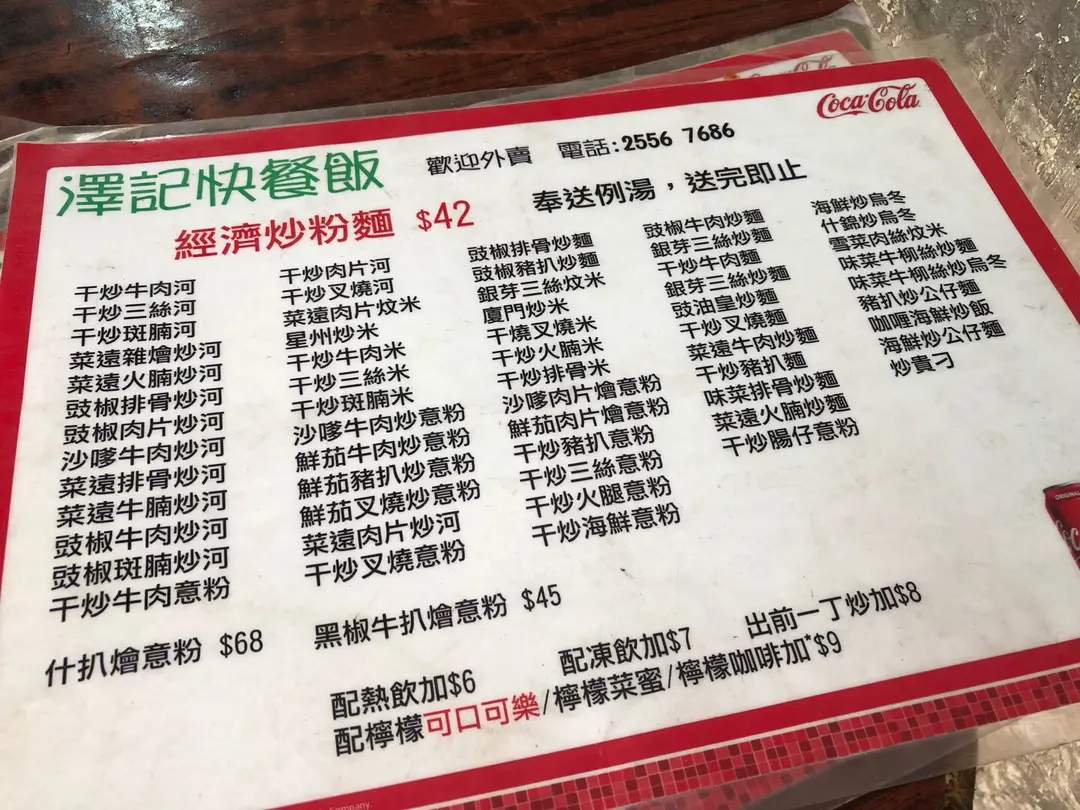 Coca-Cola
澤記快餐飯
歡迎外賣 電話:2556 7686
經濟炒粉麵 $42
奉送例湯,送完即止
干炒牛肉河
干炒三絲河
干炒斑腩河
菜遠雜燴炒河
菜遠火腩炒河
豉椒排骨炒河
豉椒肉片炒河
沙嗲牛肉炒河
菜遠排骨炒河
菜遠牛腩炒河
豉椒牛肉炒河
豉椒斑腩炒河
干炒牛肉意粉
干炒肉片河
干炒叉燒河
菜遠肉片炆米
星州炒米
干炒牛肉米
干炒三絲米
干炒斑腩米
沙嗲牛肉炒意粉
鮮茄牛肉炒意粉
鮮茄豬扒炒意粉
鮮茄叉燒炒意粉
菜遠肉片炒河
干炒叉燒意粉
豉椒排骨炒麵
豉椒豬扒炒麵
銀芽三絲炆米
廈門炒米
干燒叉燒米
干炒火腩米
干炒排骨米
沙嗲肉片燴意粉
鮮茄肉片燴意粉
干炒豬扒意粉
干炒三絲意粉
干炒火腿意粉
干炒海鮮意粉
豉椒牛肉炒麵
銀芽三絲炒麵
干炒牛肉麵
銀芽三絲炒麵
豉油皇炒麵
干炒叉燒麵
菜遠牛肉炒麵
干炒豬扒麵
味菜排骨炒麵
菜遠火腩炒麵
干炒腸仔意粉
海鮮炒烏冬
什錦炒烏冬
雪菜肉絲炆米
味菜牛柳絲炒麵
味菜牛柳絲炒烏冬
豬扒炒公仔麵
咖喱海鮮炒飯
海鮮炒公仔麵
炒貴刁
什扒燴意粉 $68
黑椒牛扒燴意粉 $45
配熱飲加$6
配凍飲加$7
出前一丁炒加$8
配檸檬可口可樂/檸檬菜蜜/檸檬咖啡加*$9
ORIGINAL
Company.